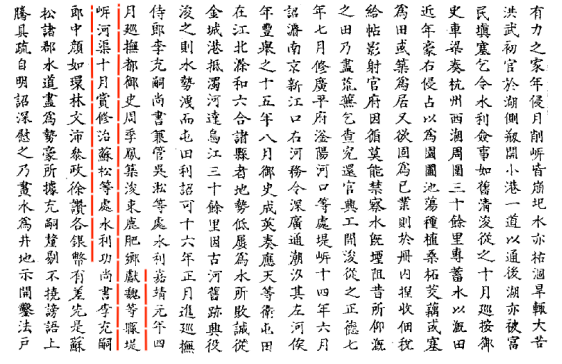 有力之家年侵月削岍皆崩圯水亦祜涸旱輙大苦
洪武初官於湖側剏開小港一道以通後湖亦被富
民塡塞乞令水利僉事如舊濬浚從之十月巡按御
史車梁奏杭州西湖周圍三十餘里專蓄水以漑田
近年豪右侵占以為園圃池蕩種植桑柘芡藕或塞
為田或築為居又欲固為已業則於冊內捏收佃税
給帖影射官府因循莫能禁察水旣堙阻昔所仰漑
之田乃盡荒蕪乞查究還官興工開浚從之正德七
年七月修廣平府滏陽河口等處堤岍十四年六月
詔濬南京新江口右河務令深廣通潮汐其左河俟
年豐舉之十五年八月御史成英奏應天等衛屯田
在江北滁和六合諸縣者地勢低屢為水所敗誠從
金城港抵濁河達烏江三十餘里因古河舊跡興役
浚之則水勢洩而屯田利詔可十六年正月進巡撫
侍郎李充嗣尚書兼管吳淞等處水利嘉靖元年四
月巡撫都御史周季鳳築浚東鹿肥鄉獻魏等縣堤
岍河渠十月賞修治蘇松等處水利功尚書李充嗣
郎中顔如環林文沛叅政徐讃各銀幣有差先是蘇
松諸郡水道盡為勢豪所據充嗣剔不撓謗語上
騰具疏自明詔深慰之乃畫水為井地示開鑿法戸